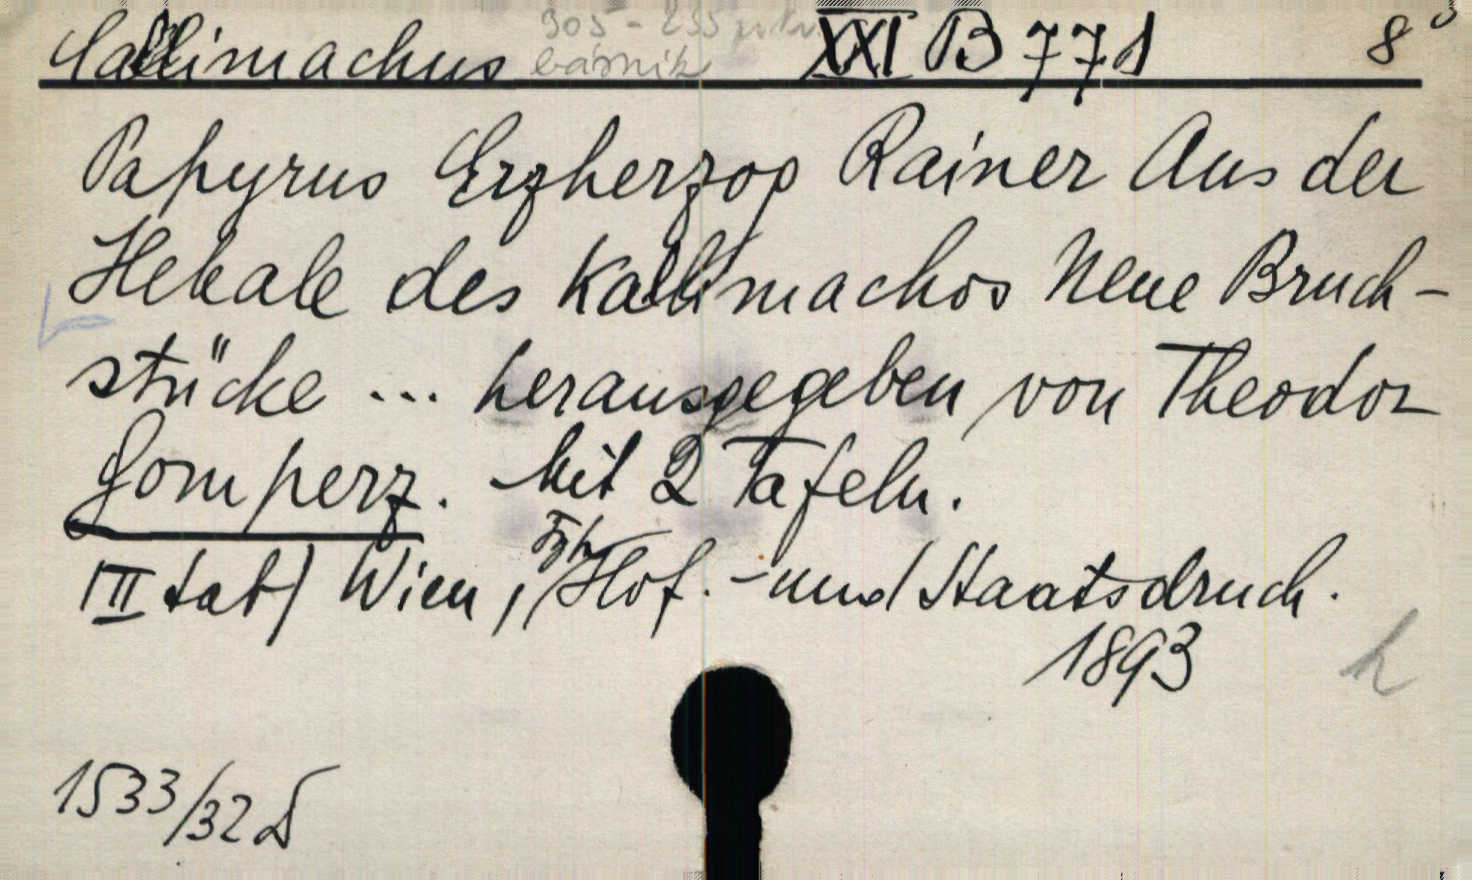 Callimachus XXI B 771 8°
básník
Papyrus Erzherzog Rainer Aus der
Hekale des Kallimachos Neue Bruch-
stücke ... herausgegeben von Theodor
Gomperz. Mit 2 Tafeln.
(II tab) Wien, Hof.-und Staatsdruck.
1893
h
1533/32